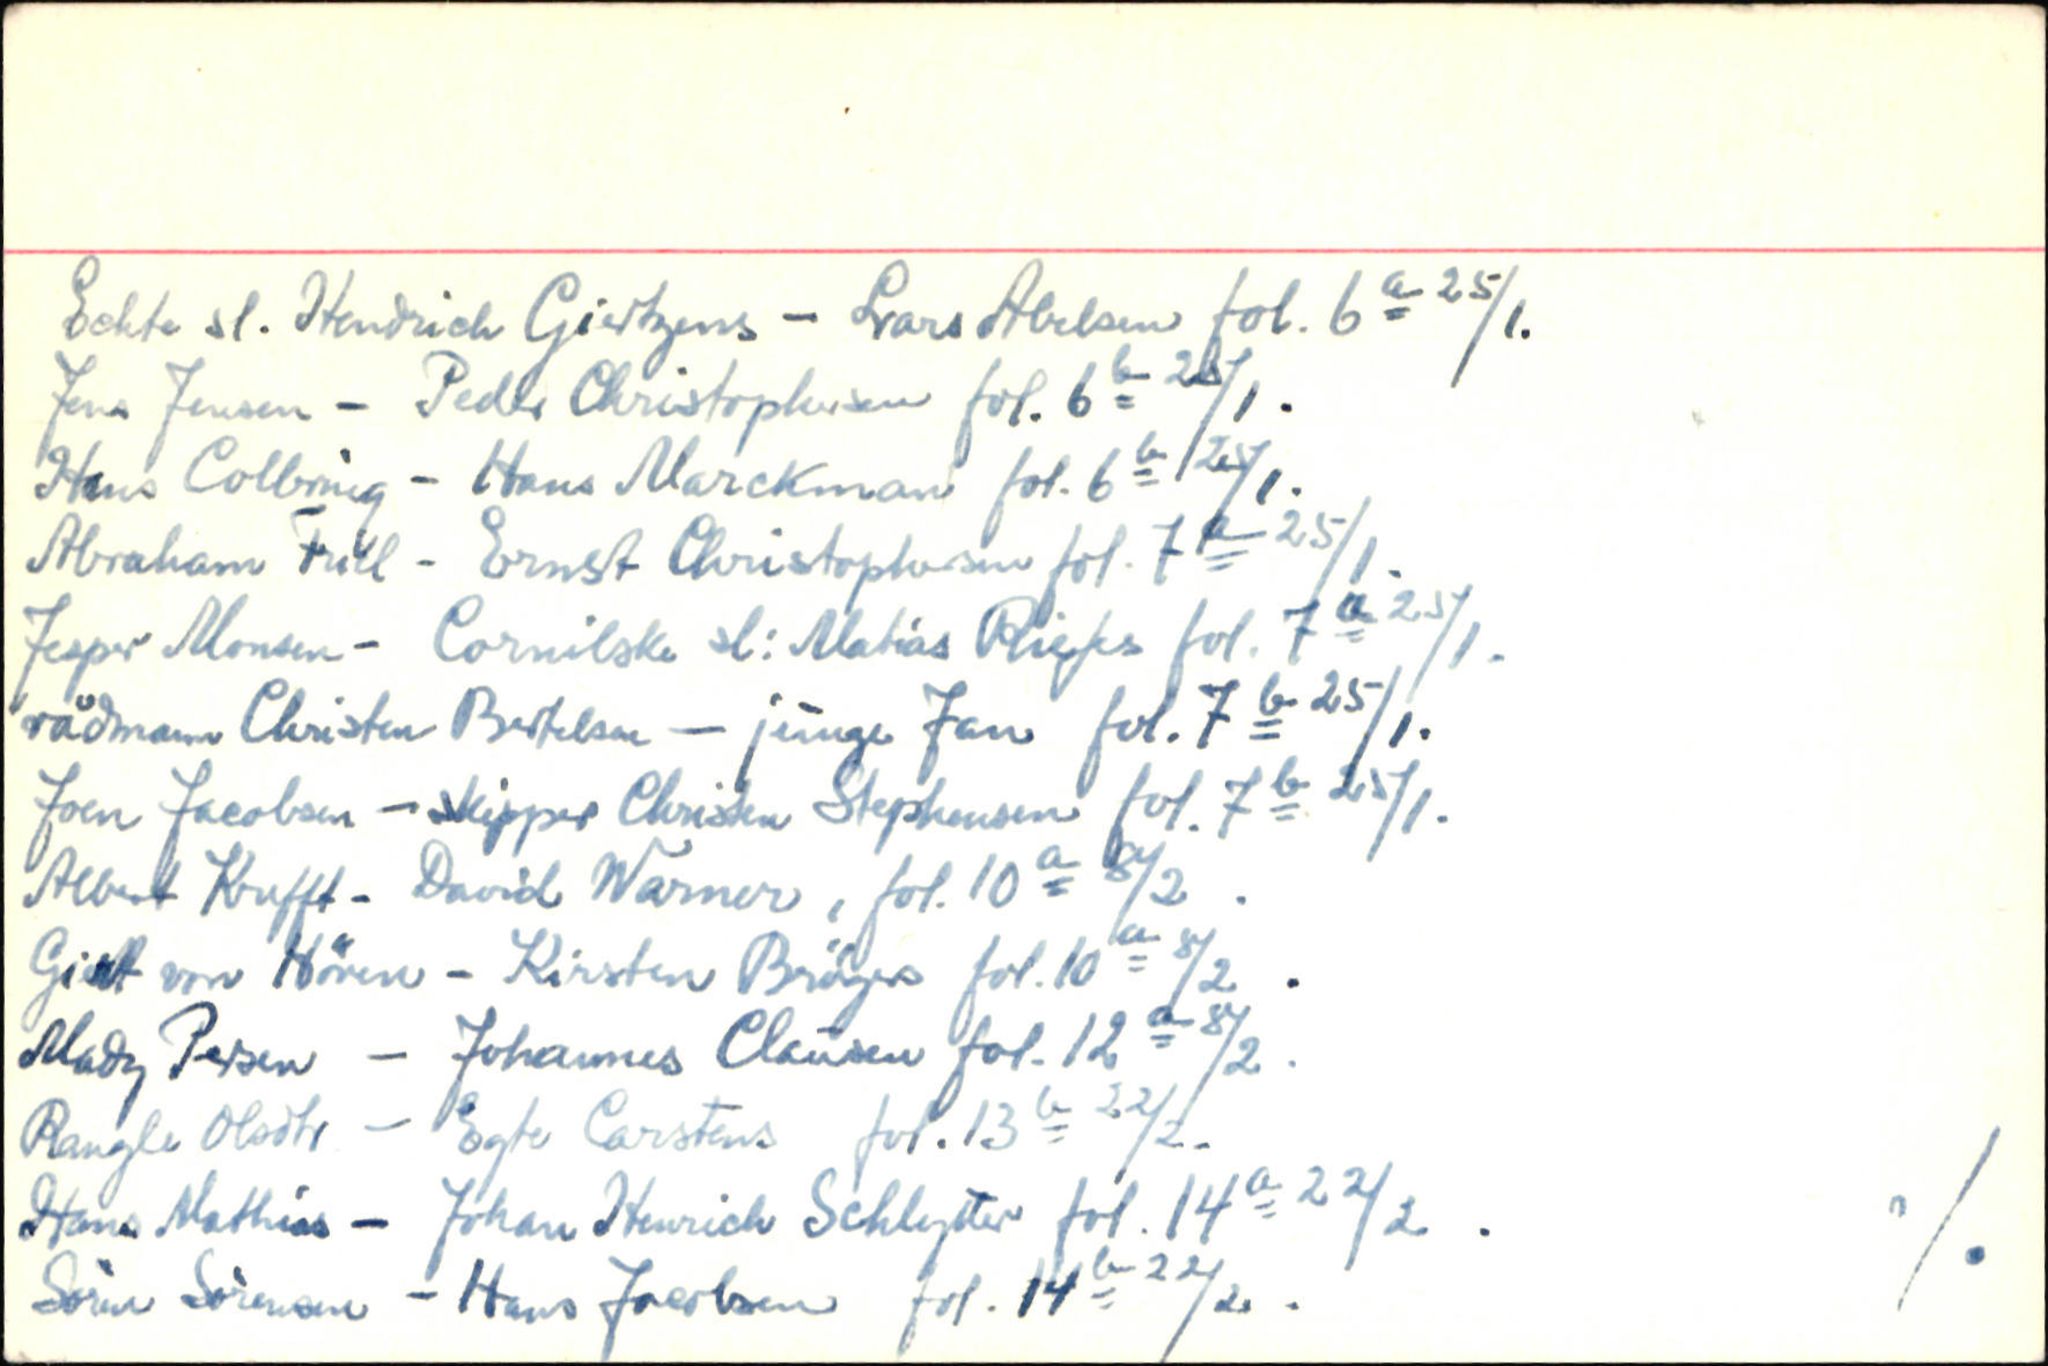 Echte sl. Hendrich Giertzens - Lars Abelsen fol. 6 a 25/1.
Jens Jensen - Peder Christophersen fol. 6 b 25/1.
Hans Colbrnig - Hans Marckman fol. 6 b 25/1.
Abraham Früll - Ernst Christophersen fol. 7 a 25/1.
Jesper Monsen - Cornilske sl: Matias Riefes fol. 7 a 25/1.
rådmann Christen Bertelsen - junge Jan fol. 7 b 25/1.
Joen Jacobsen - skipper Christen Stephensen fol. 7 b 25/1.
Albert Krufft - David Warner, fol. 10 a 8/2.
Giert von Hören - Kirsten Bröyers fol. 10 a 8/2.
Madz Persen - Johannes Clausen fol. 12 a 8/2.
Rangle Olsdtr - Egte Carstens fol. 13 b 22/2.
Hans Mathias - Johan Henrich Schlytter fol. 14 a 22/2.
Sörin Sörensen - Hans Jacobsen fol. 14 b 22/2.
./.